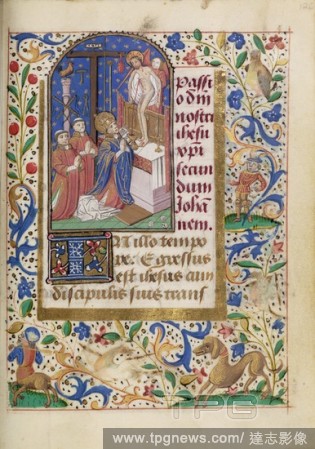 Passi
o dn̄i
nostri
ihesu
xp̄i
secun
dum
Joha
nem.
In illo tempo
re: Egressus
est ihesus cum
discipulis suis trans
TPG
www.tpgnews.com/達志影像